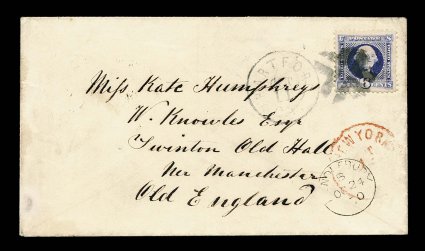 HARTFOR
POSTAGE
CENTS
Miss Kate Humphreys
W. Knowles Esqr
Swinton Old Hall
Nr Manchester
Old England
NEW YORK
24